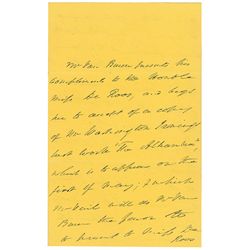 Mr Van Buren presents his
compliments to the Honble
Miss De Roos, and begs
her to accept of a copy
of Mr Washington Irving's
last work "The Alhambra",
which is to appear on the
first of May; & which
will do Mr Van
Buren the favor
to present to Miss De
Roos